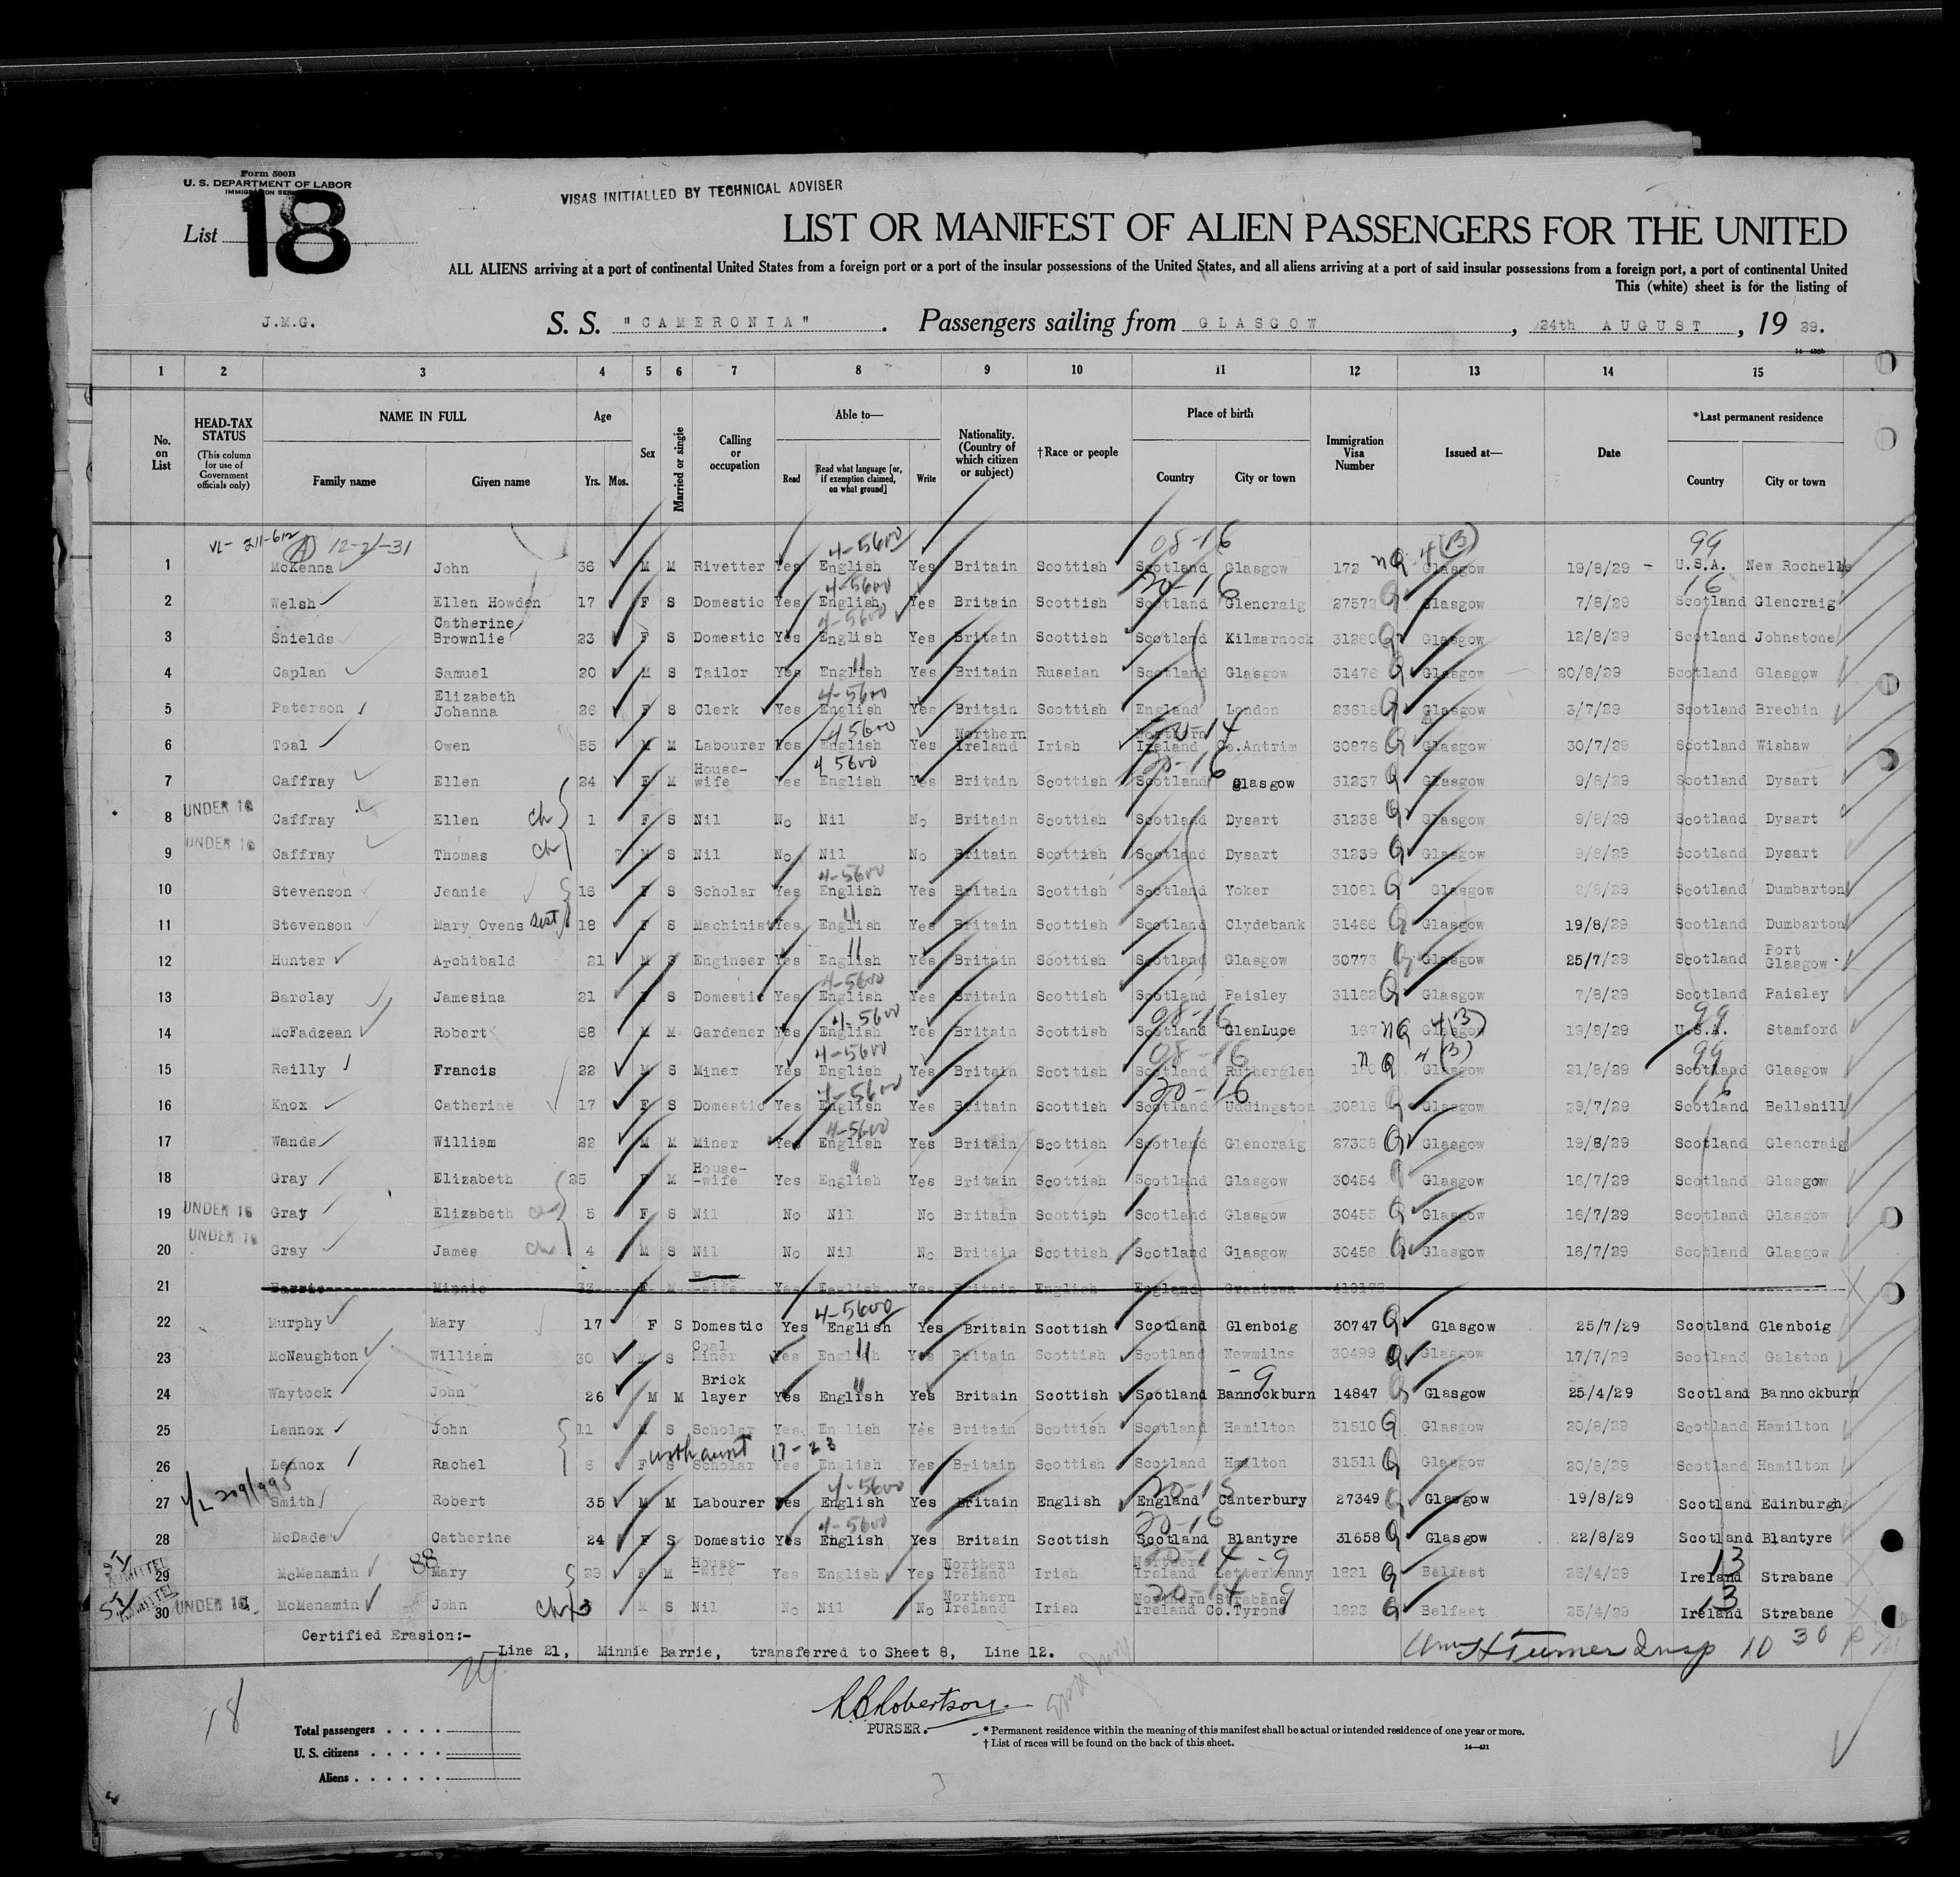 Form 500B
U. S. DEPARTMENT OF LABOR
IMMIGRATION SERVICE
List 18
VISAS INITIALLED BY TECHNICAL ADVISER
LIST OR MANIFEST OF ALIEN PASSENGERS FOR THE UNITED
ALL ALIENS arriving at a port of continental United States from a foreign port or a port of the insular possessions of the United States, and all aliens arriving at a port of said insular possessions from a foreign port, a port of continental United
This (white) sheet is for the listing of
J.M.G. S. S. "CAMERONIA". Passengers sailing from GLASGOW, 24th AUGUST, 19 29.
1 2 3 4 5 6 7 8 9 10 11 12 13 14 15
No. on List
HEAD-TAX STATUS (This column for use of Government officials only)
NAME IN FULL
Family name
Given name
Age
Yrs. Mos.
Sex
Married or single
Calling or occupation
Able to—
Read
Read what language [or, if exemption claimed, on what ground]
Write
Nationality. (Country of which citizen or subject)
†Race or people
Place of birth
Country
City or town
Immigration Visa Number
Issued at—
Date
*Last permanent residence
Country
City or town
VL- 211-612 (A) 12-21-31 4-5600 08-16 4(B) 99
1 McKenna John 36 M M Rivetter Yes English Yes Britain Scottish Scotland Glasgow 172 nQ Glasgow 19/8/29 - U.S.A. New Rochelle
4-5600 20-16 16
2 Welsh Ellen Howden 17 F S Domestic Yes English Yes Britain Scottish Scotland Glencraig 27573 Q Glasgow 7/8/29 Scotland Glencraig
4-5600
3 Shields Catherine Brownlie 23 F S Domestic Yes English Yes Britain Scottish Scotland Kilmarnock 31260 Q Glasgow 12/8/29 Scotland Johnstone
4 Caplan Samuel 20 M S Tailor Yes English Yes Britain Russian Scotland Glasgow 31476 Q Glasgow 20/8/29 Scotland Glasgow
4-5600
5 Paterson Elizabeth Johanna 26 F S Clerk Yes English Yes Britain Scottish England London 23616 Q Glasgow 3/7/29 Scotland Brechin
4 5600 20-14
6 Toal Owen 55 M M Labourer Yes English Yes Northern Ireland Irish Northern Ireland Co.Antrim 30876 Q Glasgow 30/7/29 Scotland Wishaw
4 5600 20-16
7 Caffray Ellen 24 F M House-wife Yes English Yes Britain Scottish Scotland Glasgow 31237 Q Glasgow 9/8/29 Scotland Dysart
8 UNDER 16 Caffray Ellen ch 1 F S Nil No Nil No Britain Scottish Scotland Dysart 31238 Q Glasgow 9/8/29 Scotland Dysart
9 UNDER 16 Caffray Thomas ch 7 M S Nil No Nil No Britain Scottish Scotland Dysart 31239 Q Glasgow 9/8/29 Scotland Dysart
4-5600
10 Stevenson Jeanie 16 F S Scholar Yes English Yes Britain Scottish Scotland Yoker 31081 Q Glasgow /8/29 Scotland Dumbarton
11 Stevenson Mary Ovens sist 18 F S Machinist Yes English Yes Britain Scottish Scotland Clydebank 31466 Q Glasgow 19/8/29 Scotland Dumbarton
12 Hunter Archibald 21 M S Engineer Yes English Yes Britain Scottish Scotland Glasgow 30773 Q Glasgow 25/7/29 Scotland Port Glasgow
4-5600
13 Barclay Jamesina 21 F S Domestic Yes English Yes Britain Scottish Scotland Paisley 31162 Q Glasgow 7/8/29 Scotland Paisley
4-5600 08-16 4(B) 99
14 McFadzean Robert 68 M M Gardener Yes English Yes Britain Scottish Scotland GlenLuce 167 nQ Glasgow /8/29 U.S.A. Stamford
4-5600 08-16 4(B) 99
15 Reilly Francis 22 M S Miner Yes English Yes Britain Scottish Scotland Rutherglen nQ Glasgow 21/8/29 Scotland Glasgow
4-5600 20-16 16
16 Knox Catherine 17 F S Domestic Yes English Yes Britain Scottish Scotland Uddingston 30816 Q Glasgow 29/7/29 Scotland Bellshill
4-5600
17 Wands William 22 M M Miner Yes English Yes Britain Scottish Scotland Glencraig 27338 Q Glasgow 19/8/29 Scotland Glencraig
18 Gray Elizabeth 25 F M House-wife Yes English Yes Britain Scottish Scotland Glasgow 30454 Q Glasgow 16/7/29 Scotland Glasgow
19 UNDER 16 Gray Elizabeth ch 5 F S Nil No Nil No Britain Scottish Scotland Glasgow 30455 Q Glasgow 16/7/29 Scotland Glasgow
20 UNDER 16 Gray James ch 4 M S Nil No Nil No Britain Scottish Scotland Glasgow 30456 Q Glasgow 16/7/29 Scotland Glasgow
21 Barrie Minnie 33 F M House-wife Yes English Yes Britain English England Grantown
4-5600
22 Murphy Mary 17 F S Domestic Yes English Yes Britain Scottish Scotland Glenboig 30747 Q Glasgow 25/7/29 Scotland Glenboig
23 McNaughton William 30 M S Coal Miner Yes English Yes Britain Scottish Scotland Newmilns 30499 Q Glasgow 17/7/29 Scotland Galston
-9
24 Whytock John 26 M M Brick layer Yes English Yes Britain Scottish Scotland Bannockburn 14847 Q Glasgow 25/4/29 Scotland Bannockburn
25 Lennox John 11 M S Scholar Yes English Yes Britain Scottish Scotland Hamilton 31510 Q Glasgow 20/8/29 Scotland Hamilton
with aunt 17-23
26 Lennox Rachel 6 F S Scholar Yes English Yes Britain Scottish Scotland Hamilton 31511 Q Glasgow 20/8/29 Scotland Hamilton
V/L 209/995 4-5600 20-15
27 Smith Robert 35 M M Labourer Yes English Yes Britain English England Canterbury 27349 Q Glasgow 19/8/29 Scotland Edinburgh
4-5600 20-16
28 McDade Catherine 24 F S Domestic Yes English Yes Britain Scottish Scotland Blantyre 31658 Q Glasgow 22/8/29 Scotland Blantyre
88 20-14 -9 13
29 ADMITTED McMenamin Mary 29 F M House-wife Yes English Yes Northern Ireland Irish Northern Ireland Letterkenny 1821 Q Belfast 25/4/29 Ireland Strabane
20-14 -9 13
30 ADMITTED UNDER 16 McMenamin John ch 3 M S Nil No Nil No Northern Ireland Irish Northern Ireland Strabane Co.Tyrone 1823 Q Belfast 25/4/29 Ireland Strabane
Certified Erasion:-
Line 21, Minnie Barrie, transferred to Sheet 8, Line 12.
Wm H Turner Insp 10 30 PM
18
R.B. Robertson.
PURSER.
Total passengers . . . .
U. S. citizens . . . . .
Aliens . . . . . .
* Permanent residence within the meaning of this manifest shall be actual or intended residence of one year or more.
† List of races will be found on the back of this sheet.
14—431